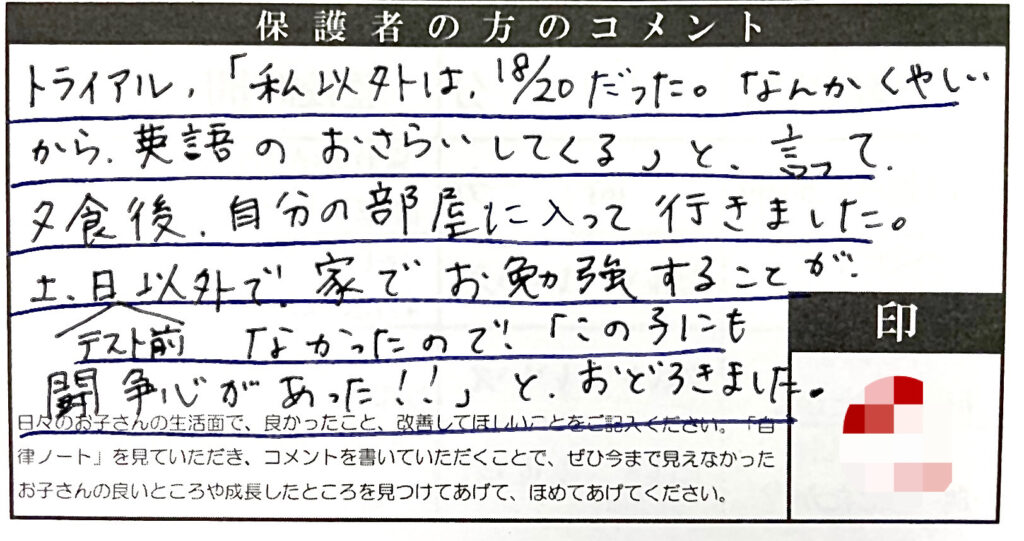 保護者の方のコメント
トライアル,「私以外は, 18/20だった。なんかくやしい
から.英語のおさらいしてくる」と、言って.
夕食後,自分の部屋に入って行きました。
土、日以外で、家でお勉強することが、
テスト前 なかったので!「この子にも
闘争心があった!!」と、おどろきました。
印
日々のお子さんの生活面で、良かったこと、改善してほしいことをご記入ください。「自
律ノート」を見ていただき、コメントを書いていただくことで、ぜひ今まで見えなかった
お子さんの良いところや成長したところを見つけてあげて、ほめてあげてください。